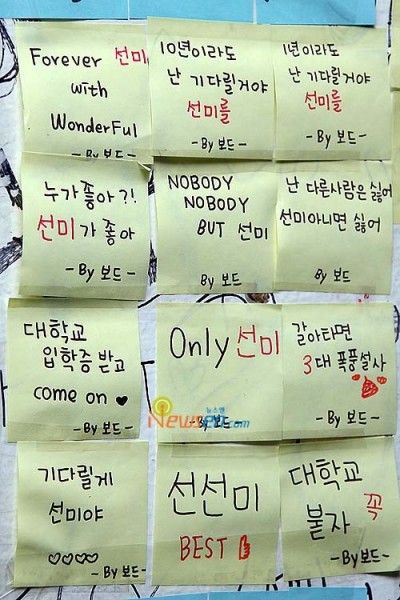 Forever 선미
with
WonderFul
-By 보드-
10년이라도
난 기다릴거야
선미를
-By 보드-
1년이라도
난 기다릴거야
선미를
-By 보드-
누가좋아?!
선미가 좋아
-By 보드-
NOBODY
NOBODY
BUT 선미
By 보드
난 다른사람은 싫어
선미아니면 싫어
By 보드
대학교
입학증 받고
come on ♥
-By 보드-
Only 선미
-By 보드-
갈아타면
3대 폭풍설사
-By 보드-
뉴스엔
Newsen.com
기다릴게
선미야
♡♡♡♡
-By 보드-
선선미
BEST
대학교
붙자 꼭
-By 보드-